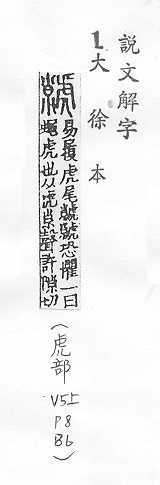 說文解字
1.大徐本
虩
易履虎尾虩虩恐懼一曰
蠅虎也从虎𡭴聲許隙切
(虎部
V5上
P8
B6)